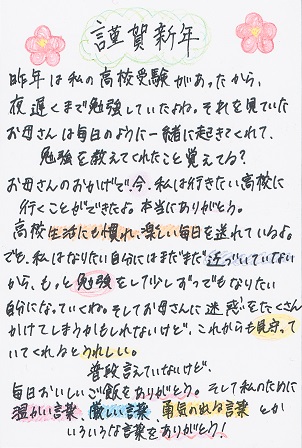 謹賀新年
昨年は私の高校受験があったから、
夜遅くまで勉強していたよね。それを見ていた
お母さんは毎日のように一緒に起きてくれて、
勉強を教えてくれたこと覚えてる?
お母さんのおかげで、今、私は行きたい高校に
行くことができたよ。本当にありがとう。
高校生活にも慣れ、楽しい毎日を送れているよ。
でも、私はなりたい自分にはまだまだ近づいていない
から、もっと勉強をして少しずつでもなりたい
自分になっていくね。そしてお母さんに迷惑をたくさん
かけてしまうかもしれないけど、これからも見守って
いてくれるとうれしい。
普段言えていないけど、
毎日おいしいご飯をありがとう。そして私のために
温かい言葉 厳しい言葉 勇気の出る言葉 とか
いろいろな言葉をありがとう!